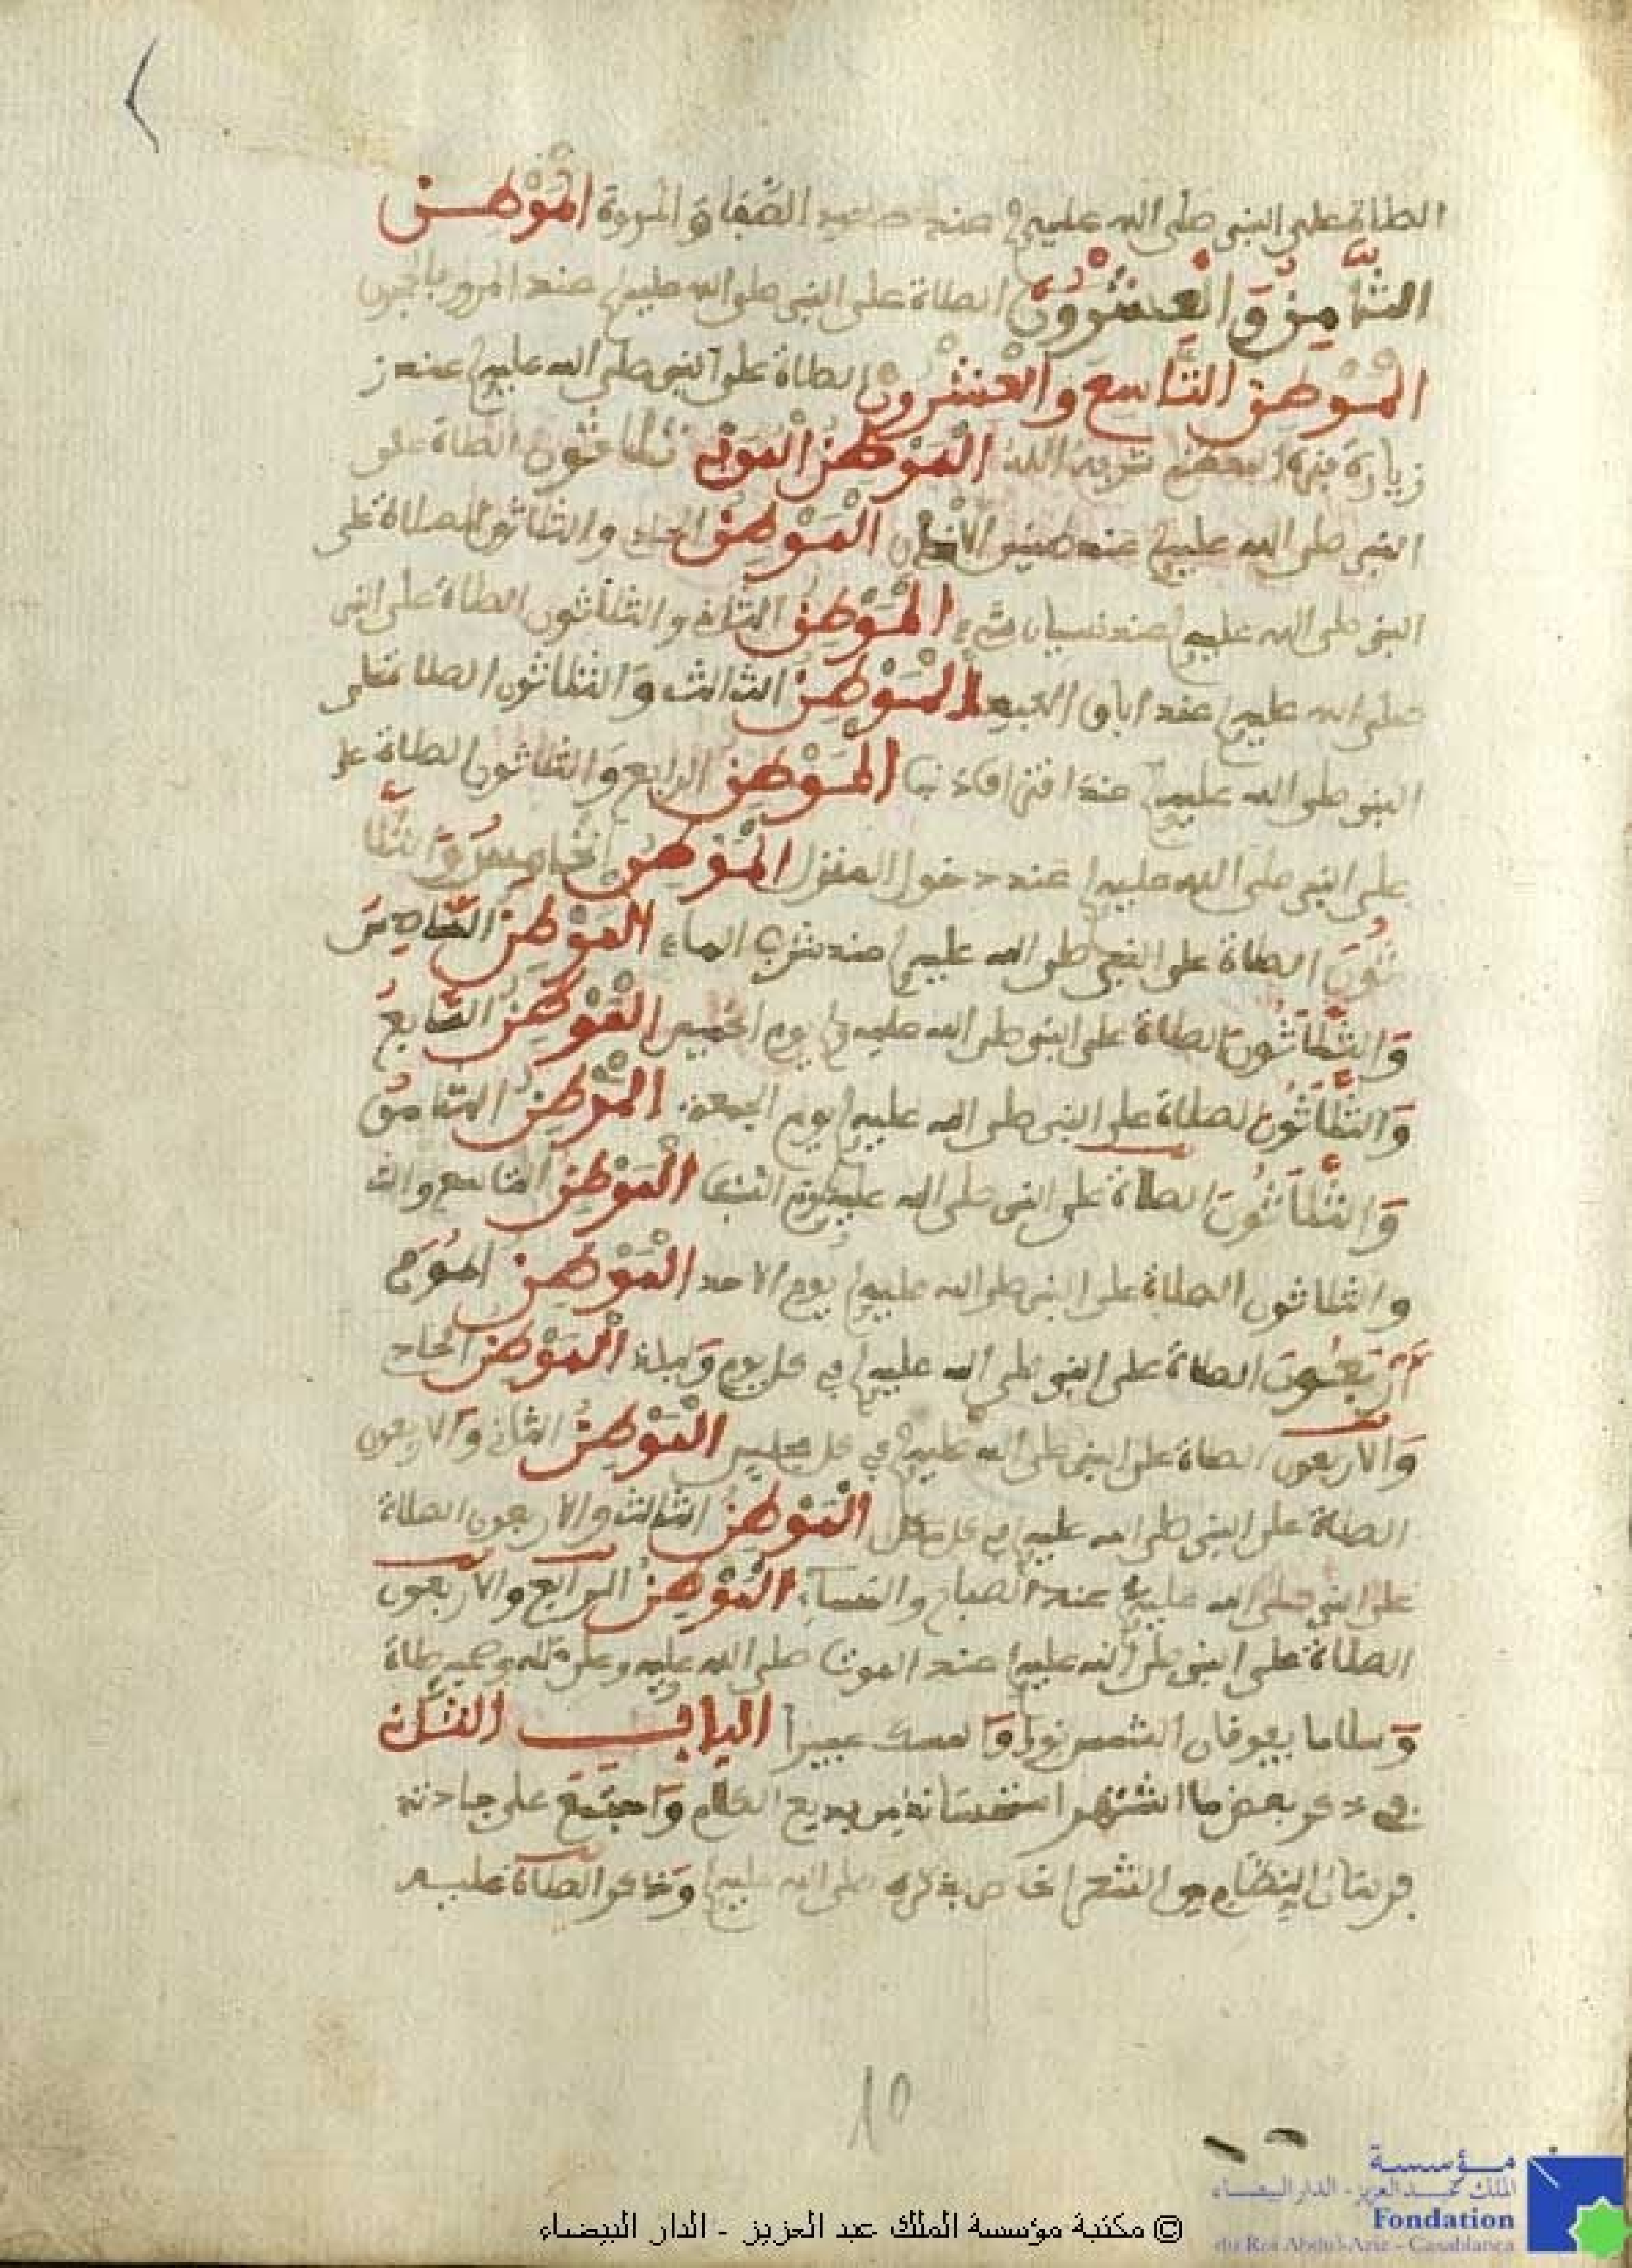 الصلاة على النبي صلى الله عليه عند صعيد الصفا و المروة الْمَوْطِن
الثَّامِنُ وَ الْعِشْرُونَ الصلاة على النبي صلى الله عليه عند المرور
الْمَوْطِن التَّاسِعَ والْعِشْرُونَ الصلاة على النبي صلى الله عليه عند ز
زيارة الْمَوْطِنُ الْمُوَفِّي ثلاثون الصلاة على
النبي صلى الله عليه عند طنين الأذن الْمَوْطِنُ الحاد والثلاثون الصلاة على
النبي صلى الله عليه عند نسيان شيء الْمَوْطِنُ الثاني والثلاثون الصلاة على النبي
صلى الله عليه عند اباق العبيد الْمَوْطِنُ الثالث وَالثلاثون الصلاة على
النبي صلى الله عليه عند الْمَوْطِنُ الرابع وَالثلاثون الصلاة على
على النبي صلى الله عليه عند دخول المنزل الْمَوْطِنُ الْخَامِسُ وَالثَّلَا
ثُونَ الصلاة على النبي صلى الله عليه عند شرب الماء الْمَوْطِنُ السَّادِسُ
وَالثَّلَاثُونَ الصلاة على النبي صلى الله عليه يوم الخميس الْمَوْطِنُ السَّابِعُ
وَالثَّلَاثُونَ الصلاة على النبي صلى الله عليه يوم الجمعة الْمَوْطِنُ الثَّامِنُ
وَالثَّلَاثُونَ الصلاة على النبي صلى الله عليه يوم السبت الْمَوْطِنُ التاسع والث
والثلاثون الصلاة على النبي صلى الله عليه يوم الاحد الْمَوْطِنُ الْمُوَفِّ
أَرْبَعُونَ الصلاة على النبي صلى الله عليه في كل يوم وَليلة الْمَوْطِنُ الحاد
وَالاربعون الصلاة على النبي صلى الله عليه في كل مجلس الْمَوْطِنُ الثاني وَالاربعون
الصلاة على النبي صلى الله عليه في كل الْمَوْطِنُ الثالث والاربعون الصلاة
على النبي صلى الله عليه عند الصباح والمساء الْمَوْطِنُ الرابع والاربعون
الصلاة على النبي صلى الله عليه عند الموت صلى الله عليه وعلى ءاله وصحبه صلاة
وَسلاما يفوقان الشمس نورا وَالمسك عبيرا الباب الثَّانِ
في ذكر بعض ما اشتهر استحسانه من بديع الكلام وَاجتمع على
النظام من الشعر الخاص بذكره صلى الله عليه وَذكر الصلاة عليه
10
مؤسسة
الملك عبد العزيز - الدار البيضاء
Fondation
du Roi Abdul-Aziz - Casablanca
© مكتبة مؤسسة الملك عبد العزيز - الدار البيضاء